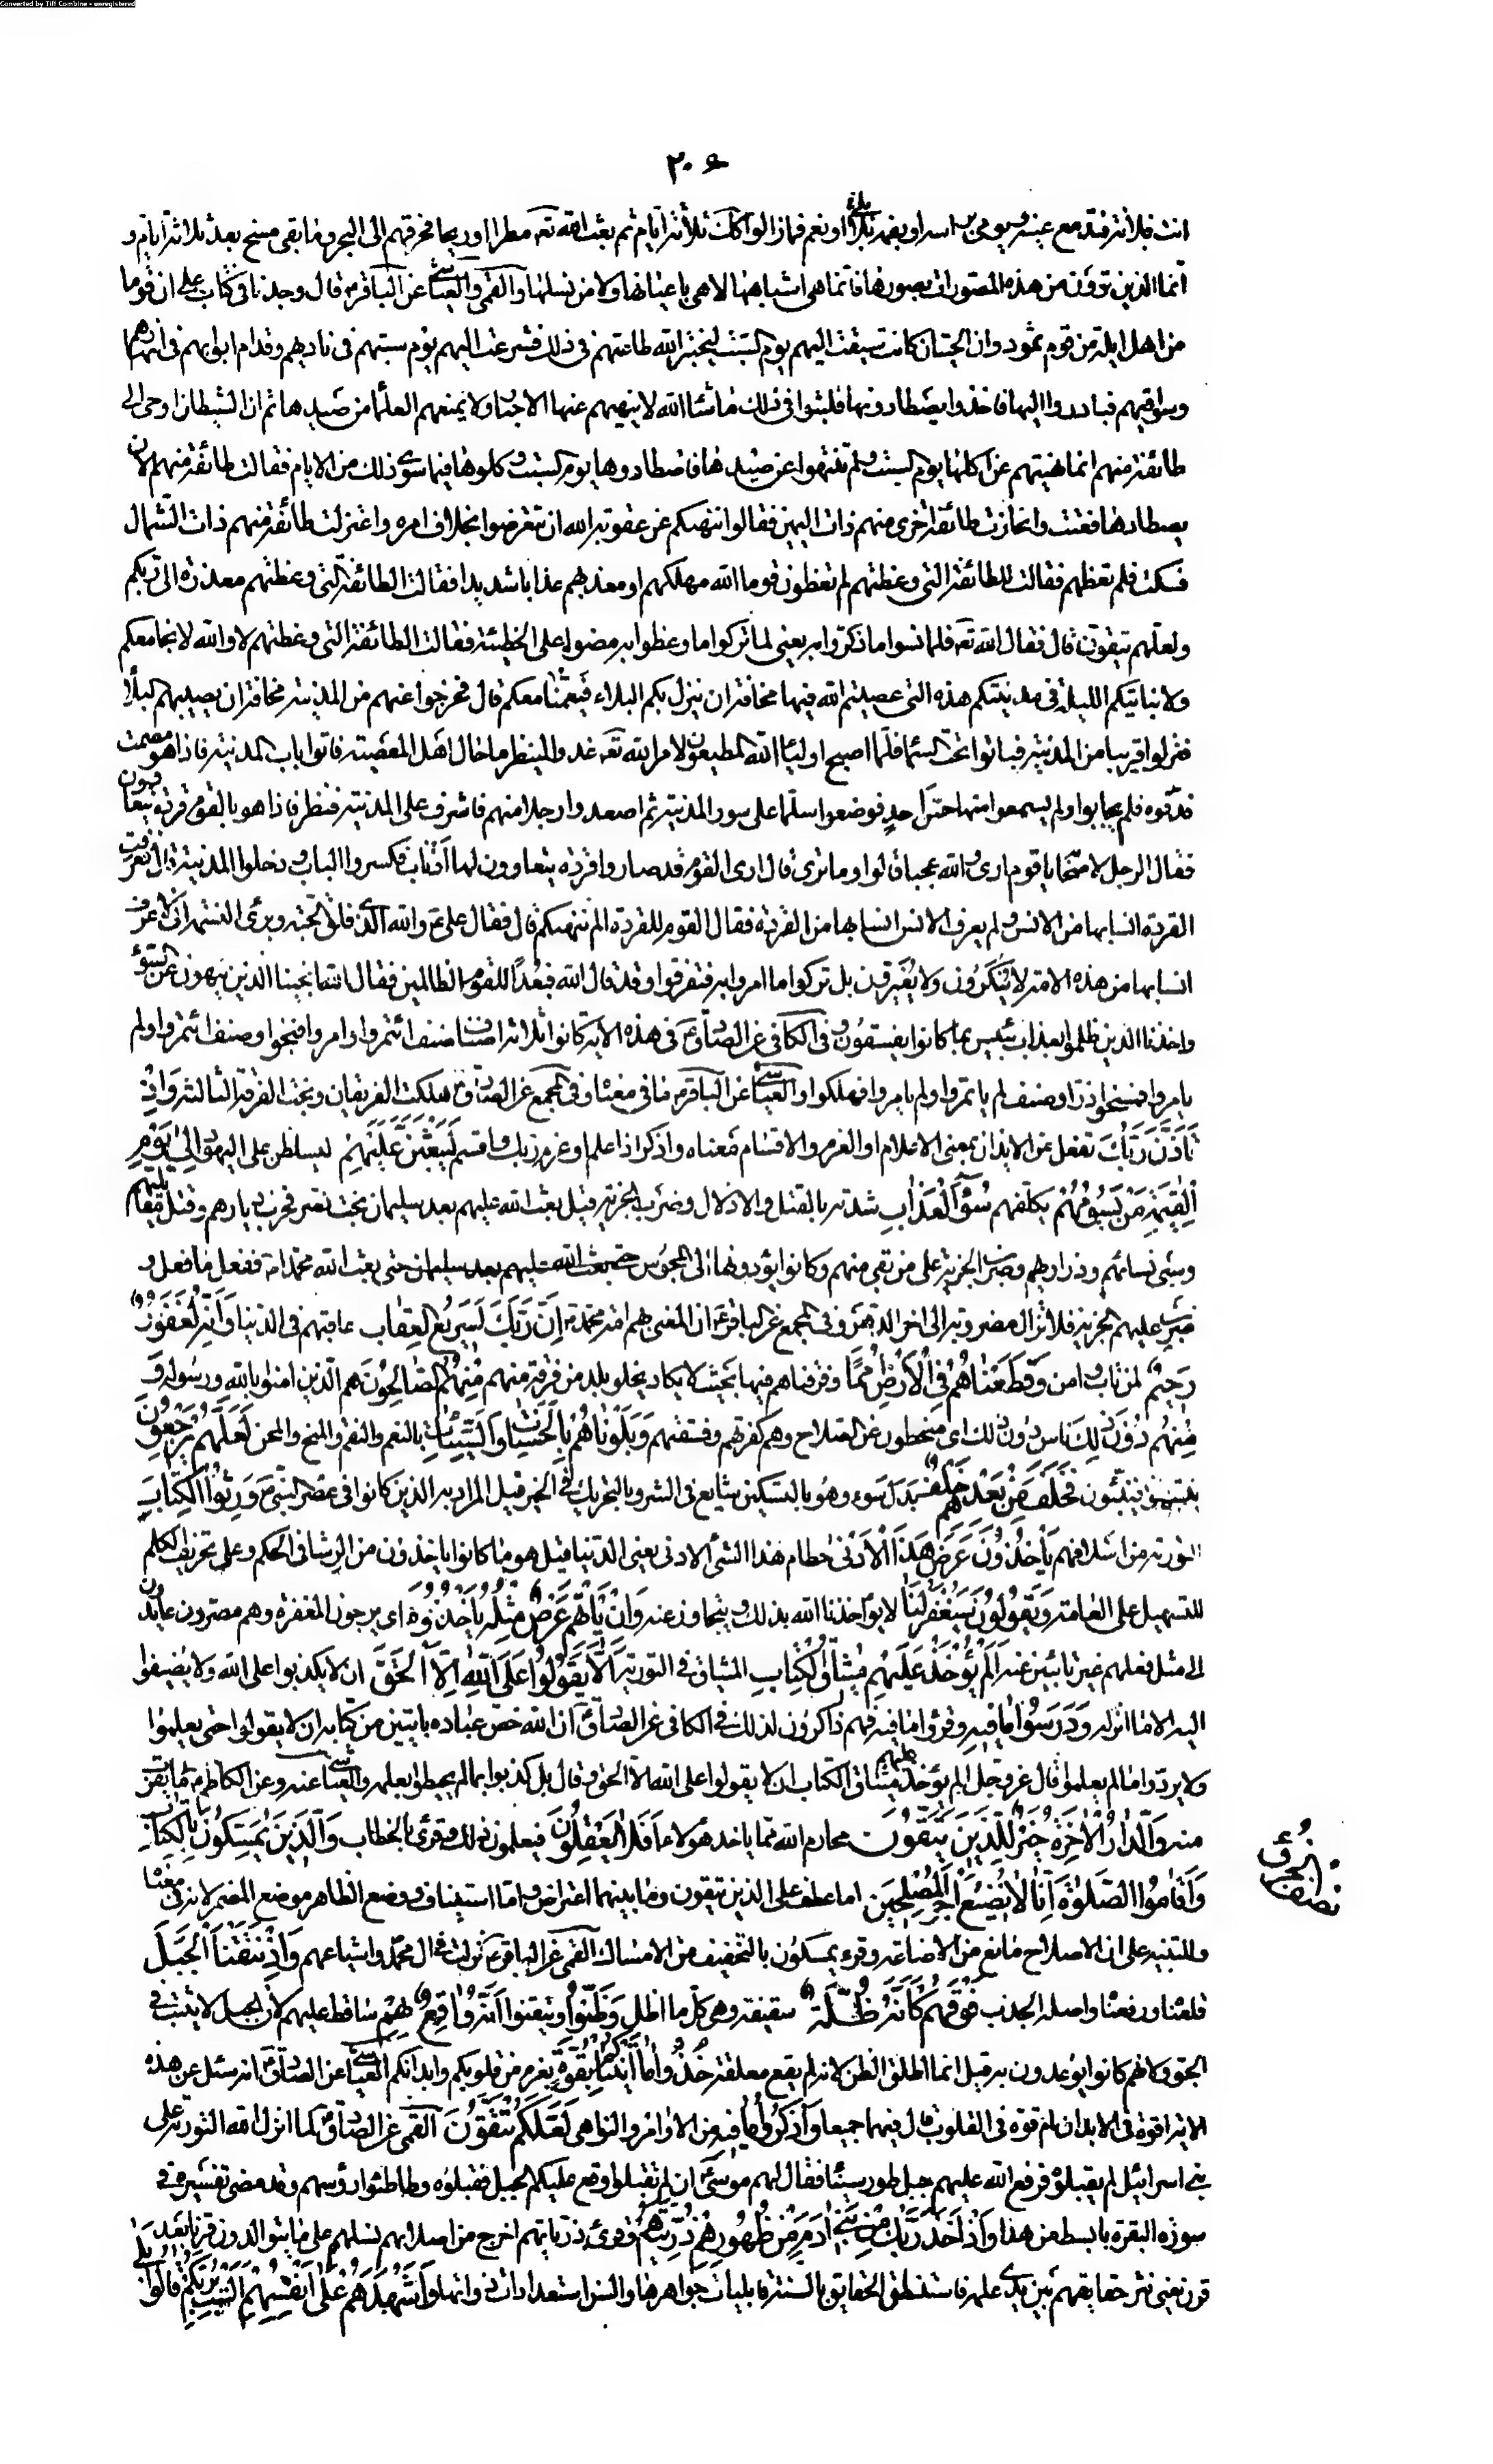 Converted by Tiff Combine - unregistered
٢٠٤
انت فلان فيدمع عينيه ويومي براسه او بفمه بلى او نعم فما زالوا كذلك ثلاثة ايام ثم بعث الله تعه مطرا وريحا فجرفهم الى البحر وما بقي مسخ بعد ثلاثة ايام و
انما الذين ترون من هذه المصورات بصورها فانما هي اشباهها لا هي باعيانها ولا من نسلها والقمي والعياشي عن الباقرع قال وجدنا في كتاب علي ان قوما
من اهل ايلة من قوم ثمود وان الحيتان كانت سبقت اليهم يوم السبت ليختبر الله طاعتهم في ذلك فشرعت اليهم يوم سبتهم في ناديهم وقدام ابوابهم في انهارهم
وسواقيهم فبادروا اليها فاخذوا يصطادونها فلبثوا في ذلك ما شاء الله لا ينهيهم عنها الاحبار ولا يمنعهم العلماء من صيدها ثم ان الشيطان اوحى الى
طائفة منهم انما نهيتم عن اكلها يوم السبت ولم تنهوا عن صيدها فاصطادوها يوم السبت وكلوها فيما سوى ذلك من الايام فقالت طائفة منهم الان
نصطادها فعتت وانحازت طائفة اخرى منهم ذات اليمين فقالوا ننهيكم عن عقوبة الله ان تتعرضوا بخلاف امره واعتزلت طائفة منهم ذات الشمال
فسكتت فلم تعظهم فقالت للطائفة التي وعظتهم لم تعظون قوما الله مهلكهم او معذبهم عذابا شديدا فقالت الطائفة التي وعظتهم معذرة الى ربكم
ولعلهم يتقون قال فقال الله تعه فلما نسوا ما ذكروا به يعني لما تركوا ما وعظوا به مضوا على الخطيئة فقالت الطائفة التي وعظتهم لا والله لا نجامعكم
ولا نبايتكم الليلة في مدينتكم هذه التي عصيتم الله فيها مخافة ان ينزل بكم البلاء فيعمنا معكم قال فخرجوا عنهم من المدينة مخافة ان يصيبهم البلاء
فنزلوا قريبا من المدينة فباتوا تحت السماء فلما اصبح اولياء الله المطيعون لامر الله تعه غدوا لينظر ما حال اهل المعصية فاتوا باب المدينة فاذا هو مصمت
فدقوه فلم يجابوا ولم يسمعوا منها حس احد فوضعوا سلما على سور المدينة ثم اصعدوا رجلا منهم فاشرف على المدينة فنظر فاذا هو بالقوم قردة يتعاوون
فقال الرجل لاصحابه يا قوم ارى والله عجبا قالوا وما ترى قال ارى القوم قد صاروا قردة يتعاوون لها اذناب فكسروا الباب ودخلوا المدينة قال فعرفت
القردة انسابها من الانس ولم يعرف الانس انسابها من القردة فقال القوم للقردة الم ننهكم قال فقال علي ع والله الذي فلق الحبة وبرئ النسمة اني لاعرف
انسابها من هذه الامة لا ينكرون ولا يغيرون بل تركوا ما امروا به فتفرقوا وقد قال الله فبعدا للقوم الظالمين فقال الله انجينا الذين ينهون عن السوء
واخذنا الذين ظلموا بعذاب بئيس بما كانوا يفسقون وفي الكافي عن الصادق ع في هذه الاية كانوا ثلاثة اصناف صنف ائتمروا وامروا فنجوا وصنف ائتمروا ولم
يامروا فمسخوا ذرا وصنف لم ياتمروا ولم يامروا فهلكوا والعياشي عن الباقرع ما في معناه وفي المجمع عن الصادق ع هلكت الفرقتان ونجت الفرقة الثالثة وَاِذْ
تَاَذَّنَ رَبُّكَ تفعل من الايذان بمعنى الاعلام او العزم والاقسام معناه واذكر اذ اعلم او عزم ربك واقسم لَيَبْعَثَنَّ عَلَيْهِمْ ليسلطن على اليهود اِلٰى يَوْمِ
الْقِيٰمَةِ مَنْ يَسُومُهُمْ يكلفهم سُوٓءَ الْعَذَابِ شدته بالقتل والاذلال وضرب الجزية قيل بعث الله عليهم بعد سليمان بخت نصر فخرب ديارهم وقتل مقاتليهم
وسبى نسائهم وذراريهم وضرب الجزية على من بقي منهم وكانوا يؤدونها الى المجوس حتى بعث الله عليهم بعد سليمان حتى بعث الله محمدا ص ففعل ما فعل و
ضرب عليهم الجزية فلا تزال مضروبة الى اخر الدهر وفي المجمع عن الباقر ع ان المعني بهم امة محمد ص اِنَّ رَبَّكَ لَسَرِيعُ الْعِقَابِ عاقبهم في الدنيا وَاِنَّهُ لَغَفُورٌ
رَحِيمٌ لمن تاب وامن وَقَطَّعْنَاهُمْ فِي الْاَرْضِ اُمَمًا وفرقناهم فيها بحيث لا يكاد يخلو بلد من فرقة منهم مِنْهُمُ الصَّالِحُونَ هم الذين امنوا بالله ورسوله وَ
مِنْهُمْ دُونَ ذٰلِكَ ناس دون ذلك اي منحطون عن الصلاح وهم كفرتهم وفسقتهم وَبَلَوْنَاهُمْ بِالْحَسَنَاتِ وَالسَّيِّئَاتِ بالنعم والنقم والمنح والمحن لَعَلَّهُمْ يَرْجِعُونَ
ينتهون فينيبون فَخَلَفَ مِنْ بَعْدِهِمْ خَلْفٌ بدل سوء وهو بالتسكين شايع في الشر وبالتحريك في الخير قيل المراد به الذين كانوا في عصر النبي ص وَرِثُوا الْكِتَابَ
التورية من اسلافهم يَاْخُذُونَ عَرَضَ هٰذَا الْاَدْنٰى حطام هذا الشئ الادنى يعني الدنيا قيل هو ما كانوا ياخذون من الرشا في الحكم وعلى تحريف الكلم
للتسهيل على العامة وَيَقُولُونَ سَيُغْفَرُ لَنَا لا يؤاخذنا الله بذلك ويتجاوز عنه وَاِنْ يَاْتِهِمْ عَرَضٌ مِثْلُهُ يَاْخُذُوهُ اي يرجون المغفرة وهم مصرون عايدون
الى مثل فعلهم غير تائبين عنه اَلَمْ يُؤْخَذْ عَلَيْهِمْ مِيثَاقُ الْكِتَابِ الميثاق في التورية اَنْ لَا يَقُولُوا عَلَى اللّٰهِ اِلَّا الْحَقَّ ان لا يكذبوا على الله ولا يضيفوا
اليه الا ما انزله وَدَرَسُوا مَا فِيهِ وقرؤا ما فيه فهم ذاكرون لذلك في الكافي عن الصادق ع ان الله خص عباده بايتين من كتابه ان لا يقولوا حتى يعلموا
ولا يردوا ما لم يعلموا قال عز وجل الم يؤخذ عليهم ميثاق الكتاب ان لا يقولوا على الله الا الحق وقال بل كذبوا بما لم يحيطوا بعلمه والعياشي عنه وعن الكاظم ع ما يقرب
منه وَالدَّارُ الْاٰخِرَةُ خَيْرٌ لِلَّذِينَ يَتَّقُونَ محارم الله مما ياخذ هؤلاء اَفَلَا يَعْقِلُونَ فيعلمون ذلك وقرئ بالخطاب وَالَّذِينَ يُمَسِّكُونَ بِالْكِتَابِ
وَاَقَامُوا الصَّلٰوةَ اِنَّا لَا نُضِيعُ اَجْرَ الْمُصْلِحِينَ اما عطف على الذين يتقون وما بينهما اعتراض واما استيناف ووضع الظاهر موضع المضمر لانه في معناه
وللتنبيه على ان الاصلاح مانع من الاضاعة وقرء يمسكون بالتخفيف من الامساك القمي عن الباقر ع نزلت في ال محمد واشياعهم وَاِذْ نَتَقْنَا الْجَبَلَ
قلعناه ورفعناه واصله الجذب فَوْقَهُمْ كَاَنَّهُ ظُلَّةٌ سقيفة وهي كل ما اظل وَظَنُّوا وتيقنوا اَنَّهُ وَاقِعٌ بِهِمْ ساقط عليهم لان الجبل لا يثبت في
الجو ولانهم كانوا يوعدون به قيل انما اطلق الظن لانه لم يقع متعلقه خُذُوا مَا اٰتَيْنَاكُمْ بِقُوَّةٍ بعزم من قلوبكم وابدانكم العياشي عن الصادق ع انه سئل عن هذه
الاية اقوة في الابدان ام قوة في القلوب قال فيهما جميعا وَاذْكُرُوا مَا فِيهِ من الاوامر والنواهي لَعَلَّكُمْ تَتَّقُونَ القمي عن الصادق ع لما انزل الله التورية على
بني اسرائيل لم يقبلوه فرفع الله عليهم جبل طور سيناء فقال لهم موسى ع ان لم تقبلوا وقع عليكم الجبل فقبلوه وطاطئوا رؤسهم وقد مضى تفسيره في
سورة البقرة بابسط من هذا وَاِذْ اَخَذَ رَبُّكَ مِنْ بَنِي اٰدَمَ مِنْ ظُهُورِهِمْ ذُرِّيَّتَهُمْ وقرئ ذرياتهم اخرج من اصلابهم نسلهم على ما يتوالدون قرنا بعد
قرن يعني نثر حقايقهم بين يدي علمه فاستنطق الحقايق بالسنة قابليات جواهرها والسن استعدادات ذواتها وَاَشْهَدَهُمْ عَلٰى اَنْفُسِهِمْ اَلَسْتُ بِرَبِّكُمْ قَالُوا بَلٰى
نصف الجزء